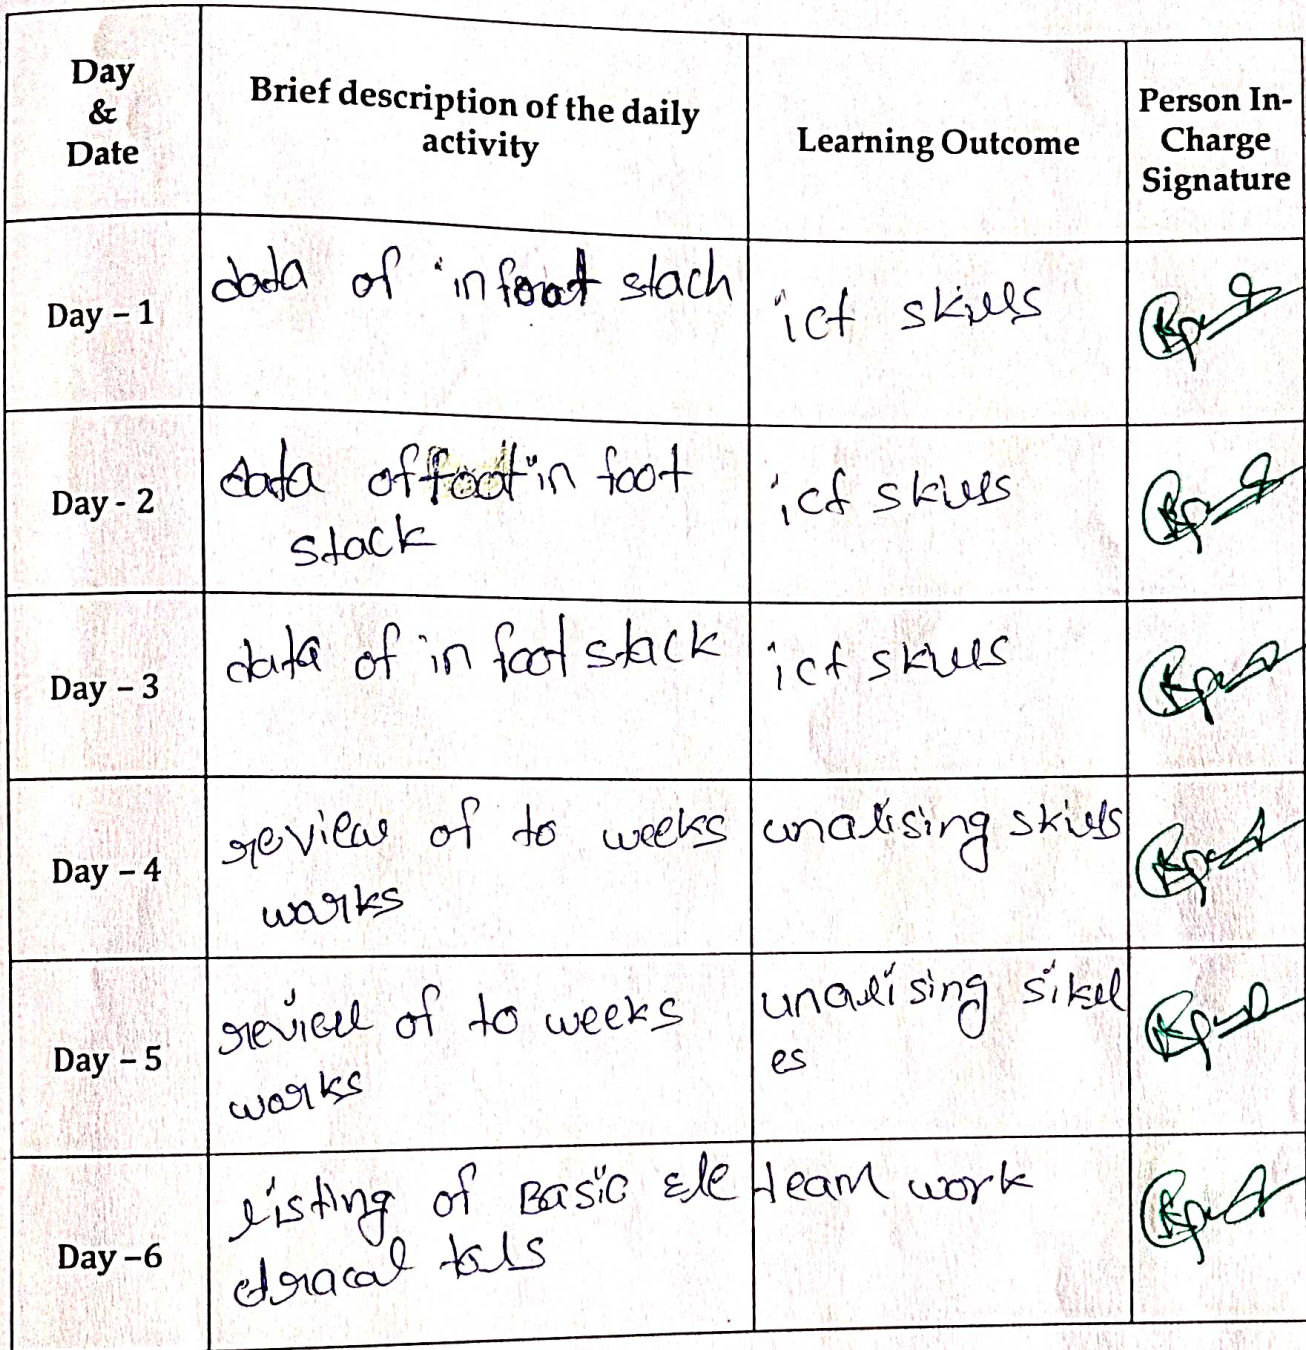 Day & Date Brief description of the daily activity Learning Outcome Person In-Charge Signature
Day – 1 data of in foot stach ict skills
Day - 2 data of foot in foot
stack ict skills
Day – 3 data of in foot stack ict skills
Day – 4 review of to weeks
works unalising skills
Day – 5 review of to weeks
works unalising sikel
es
Day –6 listing of Basic ele
ctracal tols team work